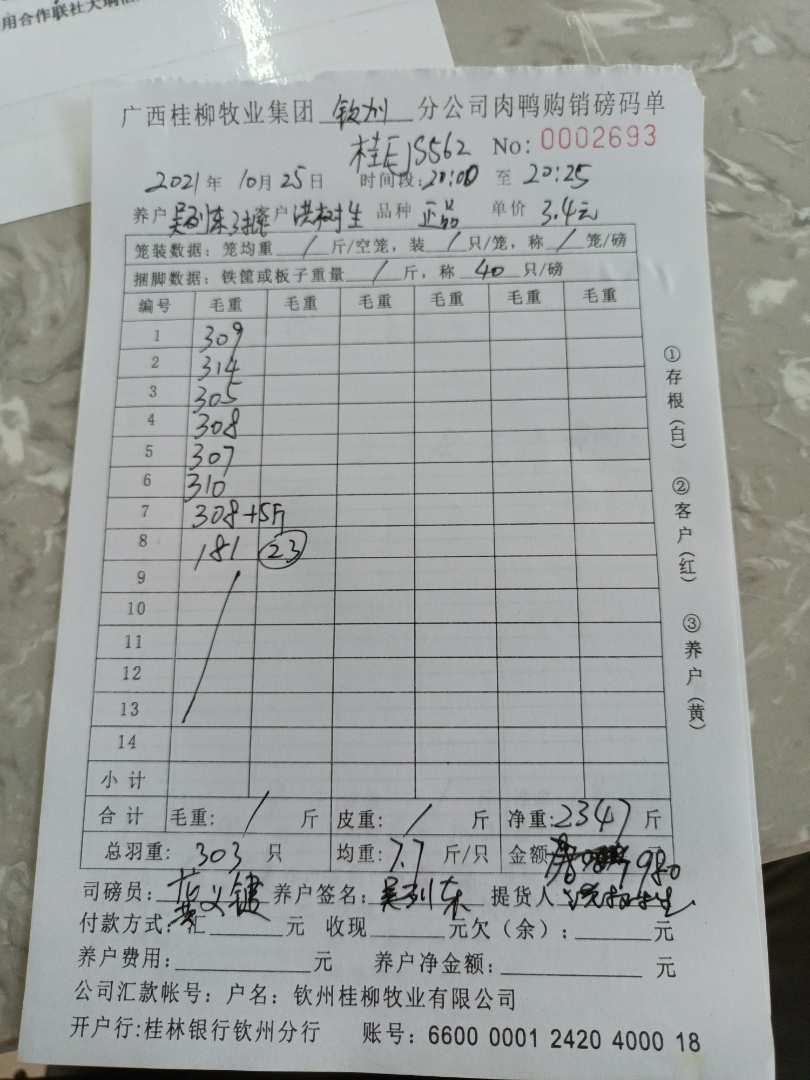 用合作联社大
广西桂柳牧业集团 钦州 分公司肉鸭购销磅码单
桂E JS562 No: 0002693
2021年 10月 25日 时间段: 20:00 至 20:25
养户 客户 洪树生 品种 正品 单价 3.4元
笼装数据: 笼均重 / 斤/空笼, 装 / 只/笼, 称 / 笼/磅
捆脚数据: 铁筐或板子重量 / 斤, 称 40 只/磅
编号 毛重 毛重 毛重 毛重 毛重 毛重
1 309
2 314
3 305
4 308
5 307
6 310
7 308+5斤
8 181 23
9
10
11
12
13
14
小计
合计 毛重: / 斤 皮重: / 斤 净重: 2347 斤
总羽重: 303 只 均重: 7.7 斤/只 金额 7980 元
司磅员: 黄义键 养户签名: 吴列东 提货人 洪树生
付款方式: 汇 元 收现 元欠(余): 元
养户费用: 元 养户净金额: 元
公司汇款帐号: 户名: 钦州桂柳牧业有限公司
开户行:桂林银行钦州分行 账号: 6600 0001 2420 4000 18
①存根(白) ②客户(红) ③养户(黄)